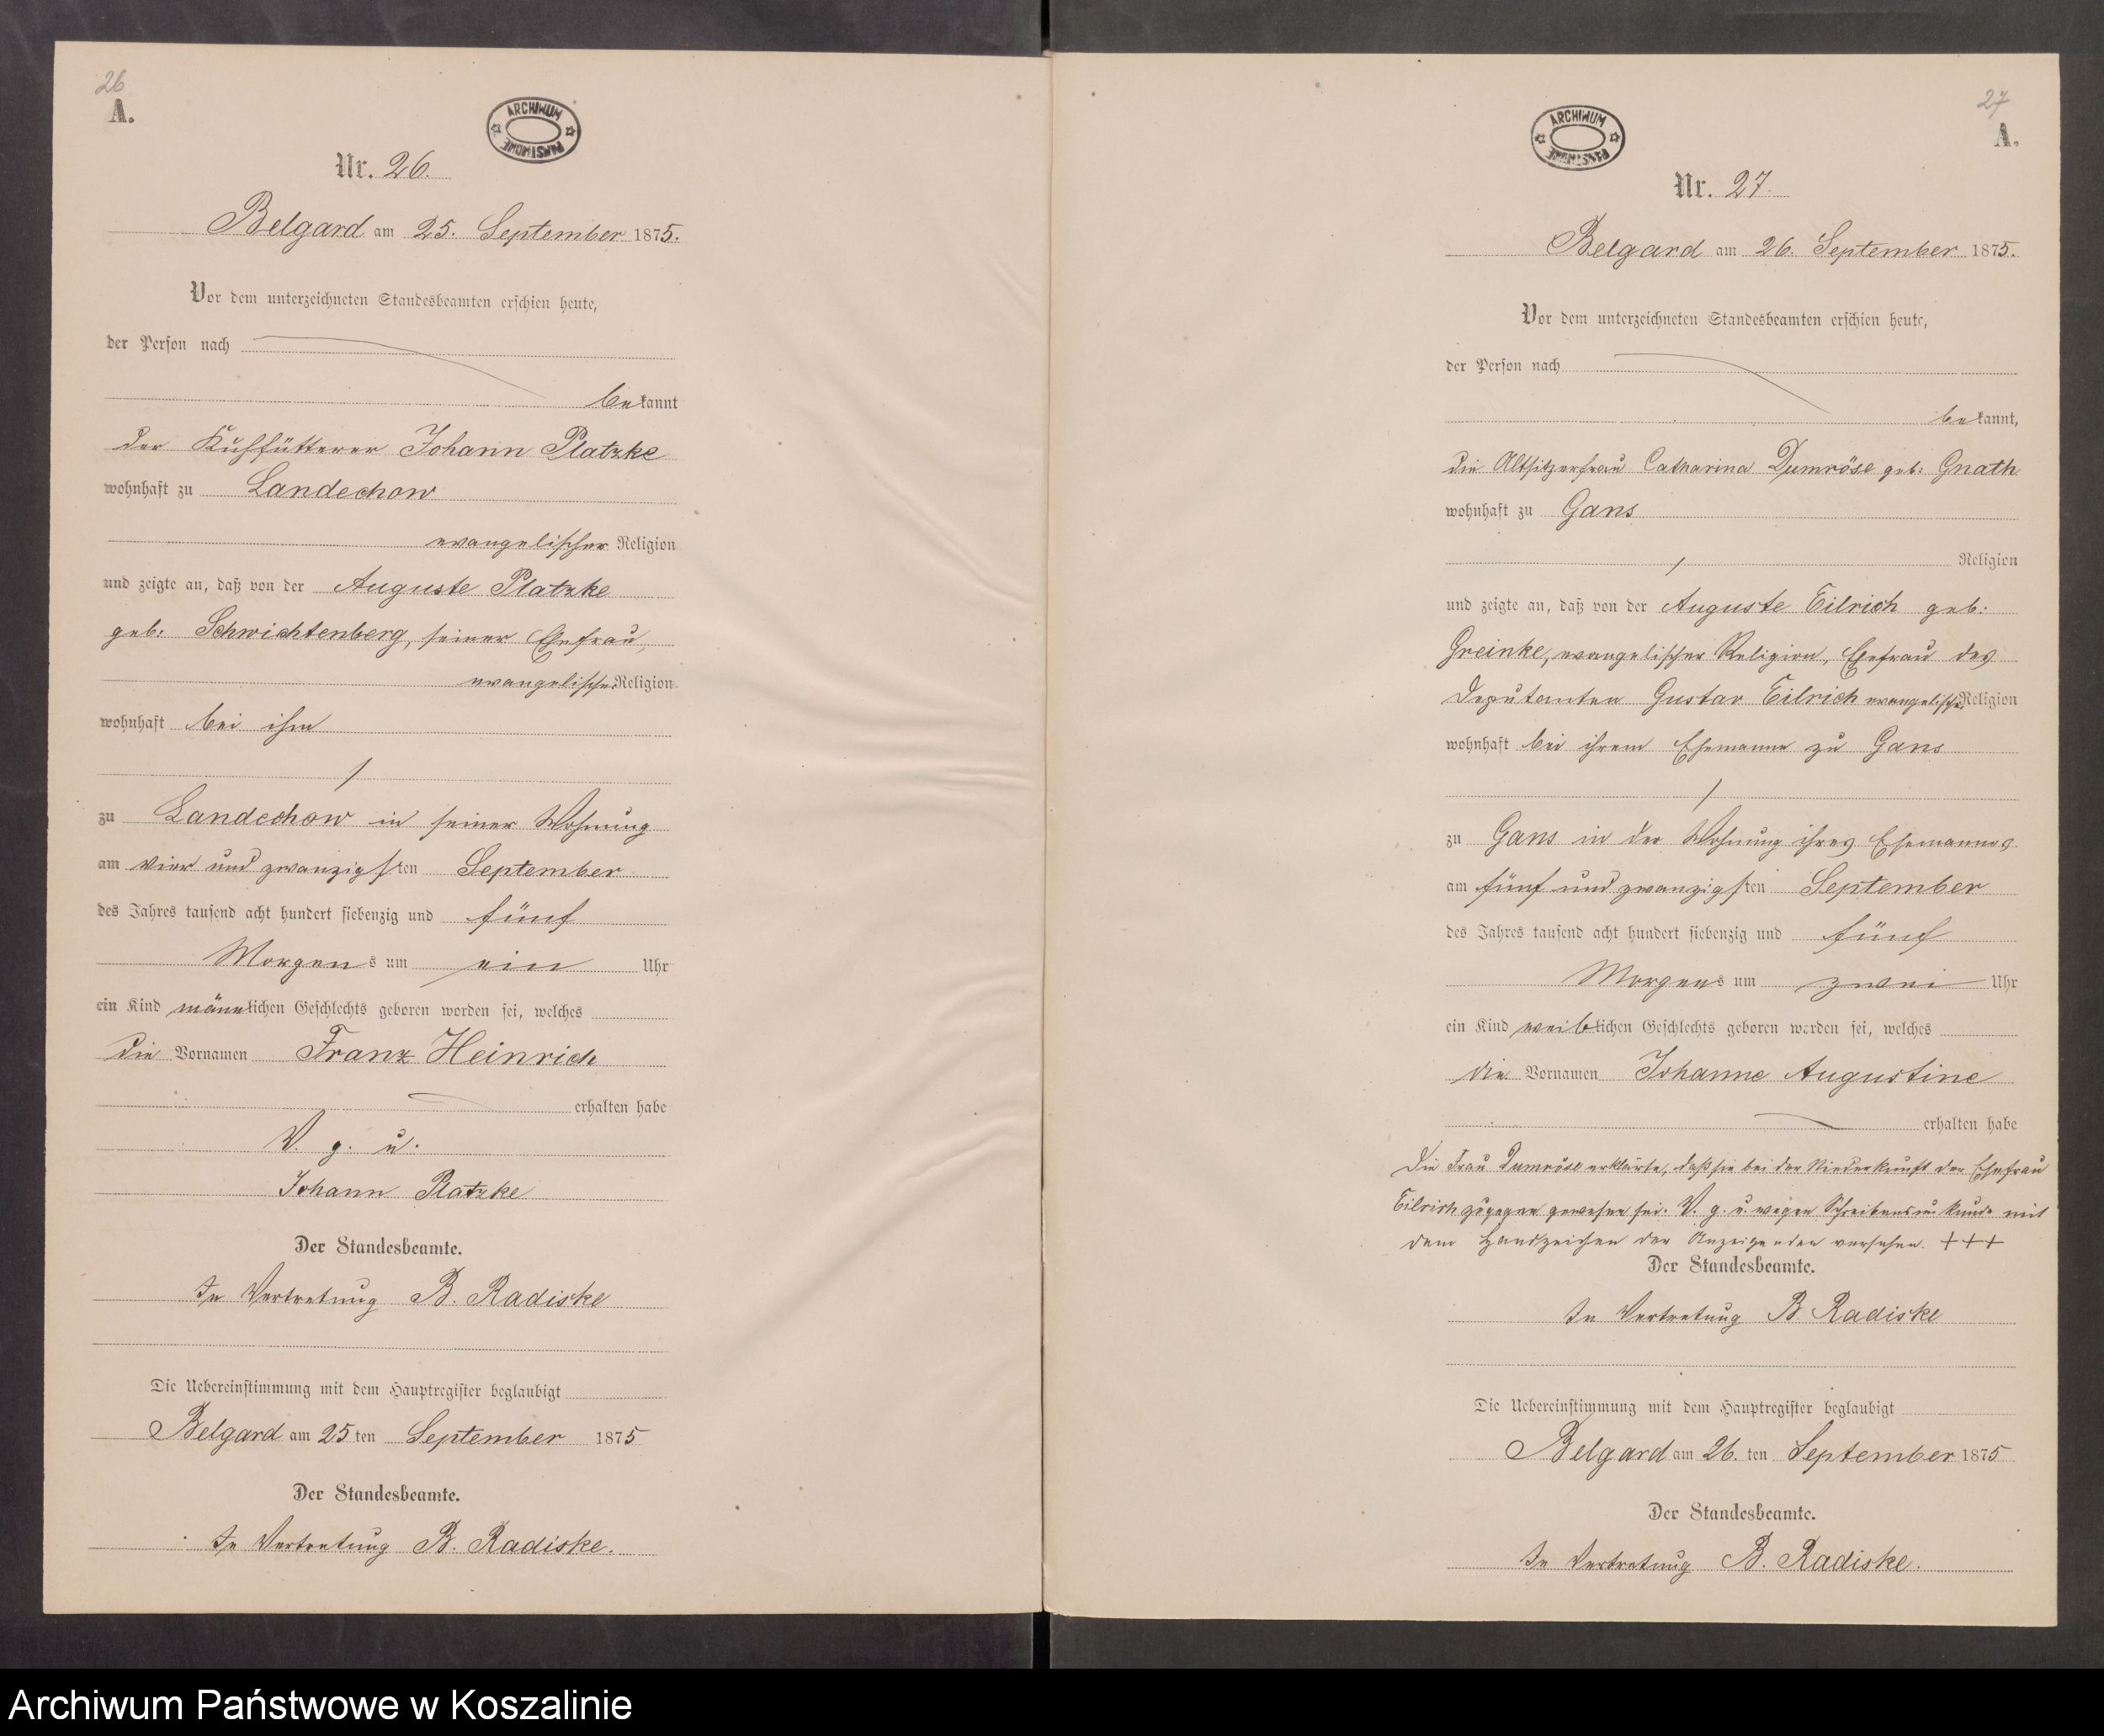 26
A.
ARCHIWUM PAŃSTWOWE
Nr. 26.
Belgard am 25. September 1875.
Vor dem unterzeichneten Standesbeamten erschien heute,
der Person nach
bekannt
der Kuhfütterer Johann Platzke
wohnhaft zu Landechow
evangelischer Religion
und zeigte an, daß von der Auguste Platzke
geb: Schwichtenberg, seiner Ehefrau,
evangelischer Religion
wohnhaft bei ihm
zu Landechow in seiner Wohnung
am vier und zwanzigsten September
des Jahres tausend acht hundert siebenzig und fünf
Morgens um ein Uhr
ein Kind männlichen Geschlechts geboren worden sei, welches
die Vornamen Franz Heinrich
erhalten habe
V. g. u.
Johann Platzke
Der Standesbeamte.
In Vertretung B. Radiske
Die Uebereinstimmung mit dem Hauptregister beglaubigt
Belgard am 25ten September 1875
Der Standesbeamte.
In Vertretung B. Radiske.
27
A.
ARCHIWUM PAŃSTWOWE
Nr. 27.
Belgard am 26. September 1875.
Vor dem unterzeichneten Standesbeamten erschien heute,
der Person nach
bekannt,
die Altsitzerfrau Catharina Dumröse geb: Gnath
wohnhaft zu Gans
Religion
und zeigte an, daß von der Auguste Eilrich geb:
Greinke, evangelischer Religion, Ehefrau des
Deputanten Gustav Eilrich evangelischer Religion
wohnhaft bei ihrem Ehemanne zu Gans
zu Gans in der Wohnung ihres Ehemannes
am fünf und zwanzigsten September
des Jahres tausend acht hundert siebenzig und fünf
Morgens um zwei Uhr
ein Kind weiblichen Geschlechts geboren worden sei, welches
die Vornamen Johanne Augustine
erhalten habe
Die Frau Dumröse erklärte, daß sie bei der Niederkunft der Ehefrau
Eilrich zugegen gewesen sei. V. g. u. wegen Schreibensunkunde mit
dem Handzeichen der Anzeigenden versehen. +++
Der Standesbeamte.
In Vertretung B. Radiske
Die Uebereinstimmung mit dem Hauptregister beglaubigt
Belgard am 26. ten September 1875
Der Standesbeamte.
In Vertretung B. Radiske.
Archiwum Państwowe w Koszalinie